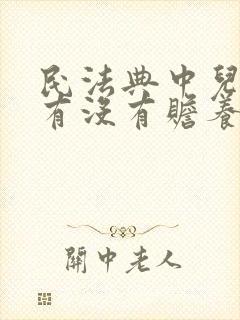 民法典中兒
有没有贍養
關中老人